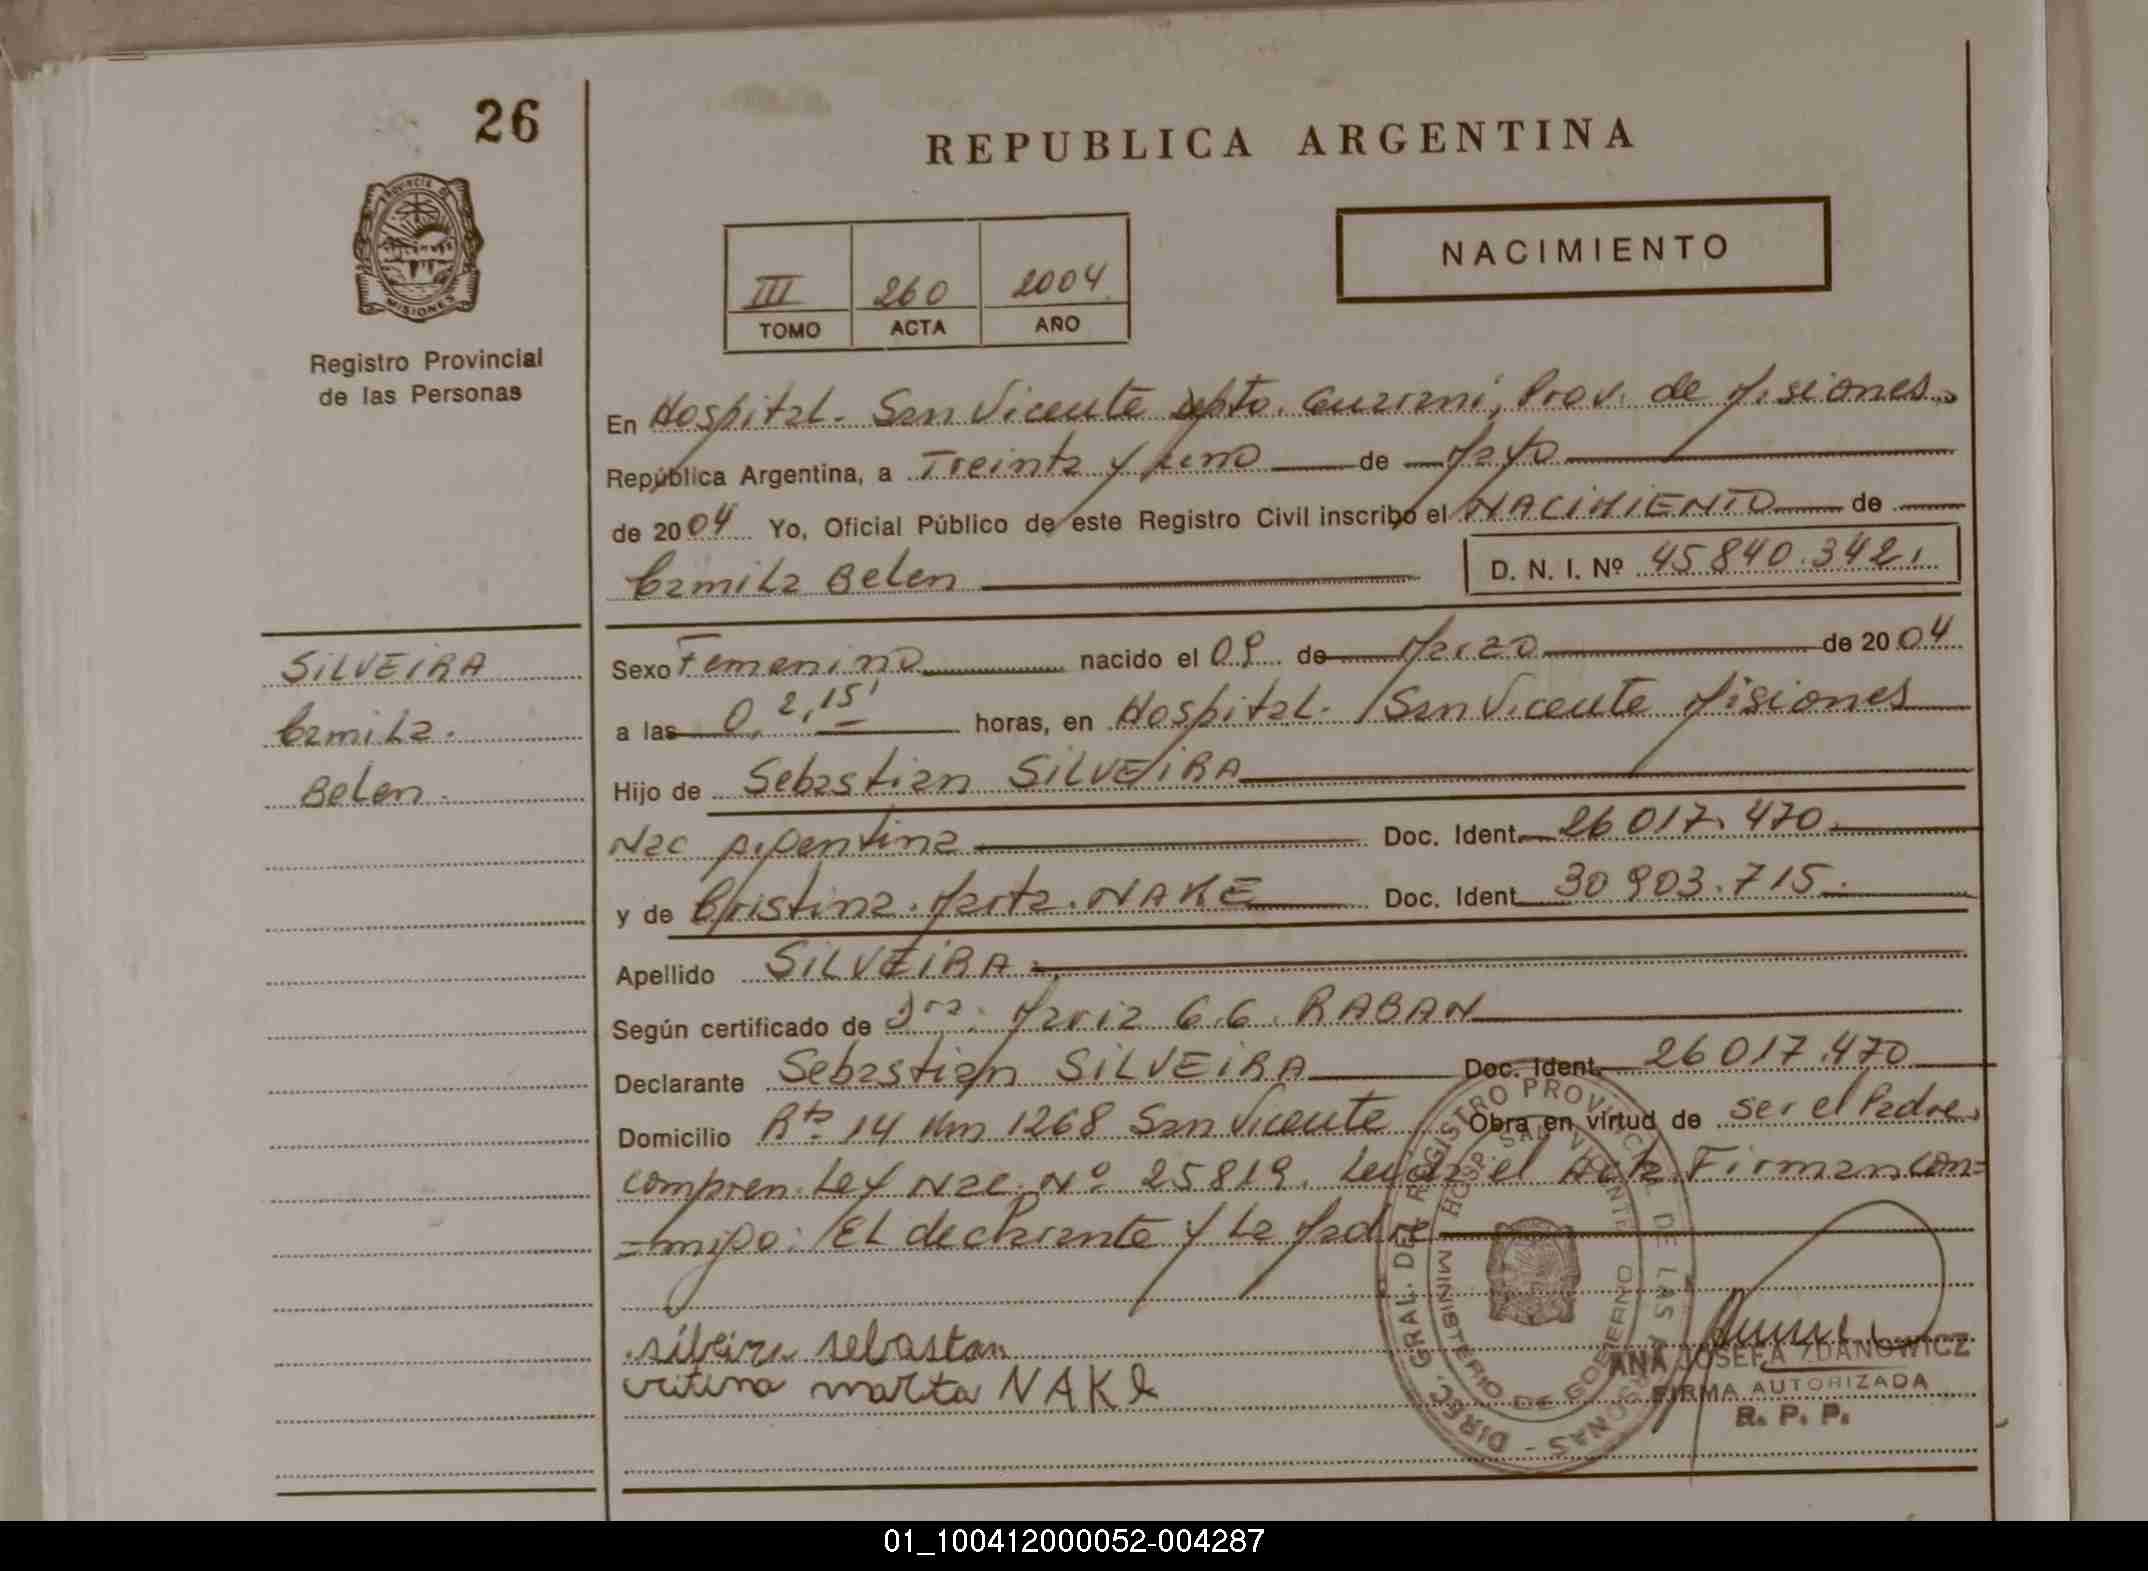 26
REPUBLICA ARGENTINA
PROVINCIA DE
MISIONES
Registro Provincial
de las Personas
NACIMIENTO
III 260 2004
TOMO ACTA AÑO
En Hospital. San Vicente dpto. Guarani, Prov. de Misiones.
República Argentina, a Treinta y uno de Mayo
de 2004 Yo, Oficial Público de este Registro Civil inscribo el NACIMIENTO de
Camila Belen D. N. I. Nº 45840.342.
SILVEIRA
Camila.
Belen.
Sexo Femenino nacido el 09 de Marzo de 2004
a las 0,2,15' horas, en Hospital. San Vicente Misiones
Hijo de Sebastian SILVEIRA
Nac Argentina Doc. Ident. 26017.470.
y de Cristina. Marta. NAKE Doc. Ident. 30903.715.
Apellido SILVEIRA.
Según certificado de Dra. Maria G.G. RABAN
Declarante Sebastian SILVEIRA Doc. Ident. 26017.470
Domicilio Rta 14 Km 1268 San Vicente Obra en virtud de ser el Padre.
Compren. Ley Nac. Nº 25819. Leida el Acta. Firman con=
=migo: El declarante y la Madre
silveira sebastan
critina marta NAKE
DIREC. GRAL. DEL REGISTRO PROVINCIAL DE LAS PERSONAS -
HOSP. SAN VICENTE
MINISTERIO DE GOBIERNO
ANA JOSEFA ZDANOWICZ
FIRMA AUTORIZADA
R. P. P.
01_100412000052-004287